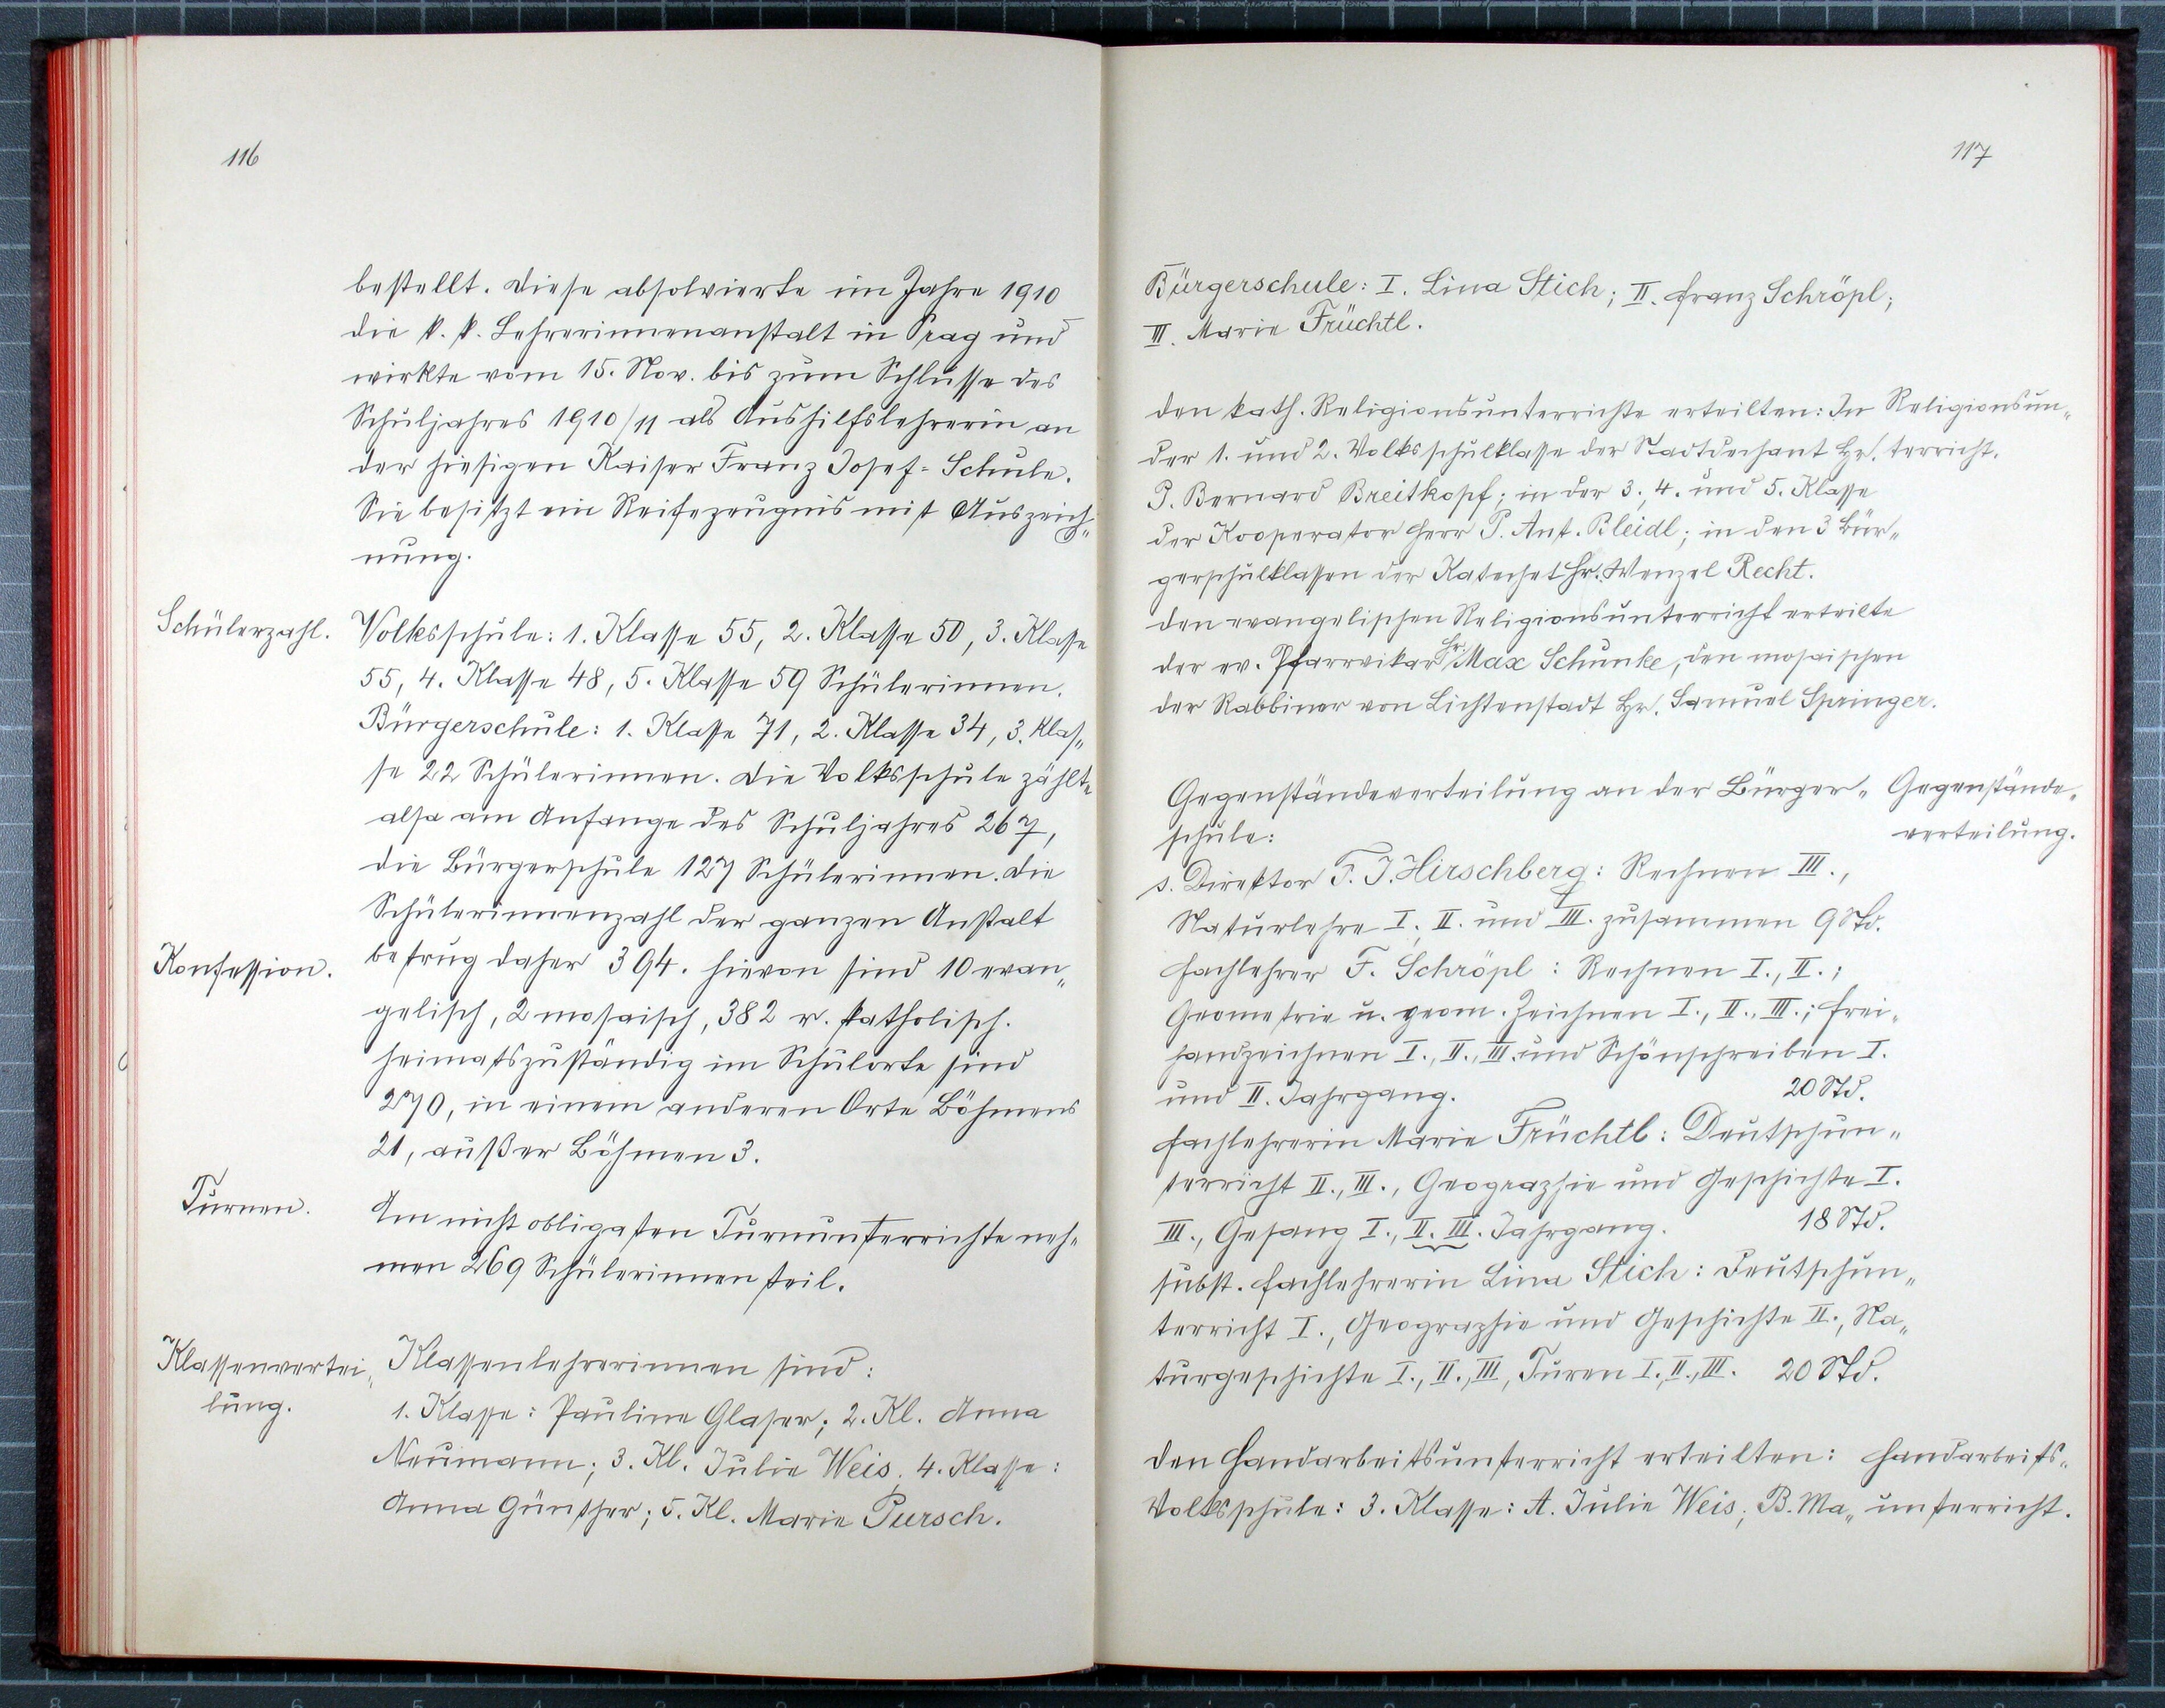 116
bestellt. Diese absolvierte im Jahre 1910
die k. k. Lehrerinnenanstalt in Prag und
wirkte vom 15. Nov. bis zum Schlusse des
Schuljahres 1910/11 als Aushilfslehrerin an
der hiesigen Kaiser Franz Josef-Schule.
Sie besitzt ein Reifezeugnis mit Auszeich„
nung.
Schülerzahl. Volksschule: 1. Klasse 55, 2. Klasse 50, 3. Klasse
55, 4. Klasse 48, 5. Klasse 59 Schülerinnen.
Bürgerschule: 1. Klasse 71, 2. Klasse 34, 3. Klas„
se 22 Schülerinnen. Die Volksschule zählte
also am Anfange des Schuljahres 267,
die Bürgerschule 127 Schülerinnen. Die
Schülerinnenzahl der ganzen Anstalt
Konfession. betrug daher 394. Hievon sind 10 evan„
gelisch, 2 mosaisch, 382 r. katholisch.
Heimatszuständig im Schulorte sind
270, in einem anderen Orte Böhmens
21, außer Böhmen 3.
Turnen. Am nicht obligaten Turnunterrichte neh„
men 269 Schülerinnen teil.
Klassenvertei„ Klassenlehrerinnen sind:
lung. 1. Klasse: Pauline Glaser; 2. Kl. Anna
Neumann; 3. Kl. Julie Weis; 4. Klasse:
Anna Günther; 5. Kl. Marie Pursch.
117
Bürgerschule: I. Lina Stich; II. Franz Schröpl;
III. Marie Früchtl.
Den kath. Religionsunterrichte erteilten: In Religionsun„
der 1. und 2. Volksschulklasse der Stadtdechant Hr. terricht.
P. Bernard Breitkopf; in der 3., 4. und 5. Klasse
der Kooperator Herr P. Ant. Bleidl; in den 3 Bür„
gerschulklassen der Katechet Hr. Wenzel Recht.
Den evangelischen Religionsunterricht erteilte
der ev. Pfarrvikar Hr. Max Schunke, den mosaischen
der Rabbiner von Lichtenstadt Hr. Samuel Springer.
Gegenständeverteilung an der Bürger„ Gegenstände„
schule: verteilung.
s. Direktor F. J. Hirschberg: Rechnen III.,
Naturlehre I., II. und III. zusammen 9 Std.
Fachlehrer F. Schröpl: Rechnen I., II.;
Geometrie u. geom. Zeichnen I., II., III.; Frei„
handzeichnen I., II., III. und Schönschreiben I.
und II. Jahrgang. 20 Std.
Fachlehrerin Marie Früchtl: Deutschun„
terricht II., III., Geographie und Geschichte I.
III., Gesang I., II. III. Jahrgang. 18 Std.
subst. Fachlehrerin Lina Stich: Deutschun„
terricht I., Geographie und Geschichte II., Na„
turgeschichte I., II., III, Turen I., II., III. 20 Std.
Den Handarbeitsunterricht erteilten: Handarbeits„
Volksschule: 3. Klasse: A. Julie Weis; B. Ma„ unterricht.